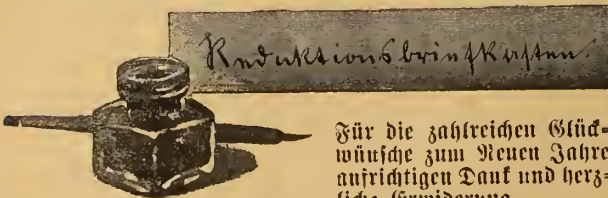 Redaktionsbriefkasten.
Für die zahlreichen Glück-
wünsche zum Neuen Jahre
aufrichtigen Dank und herz-
liche Erwiderung